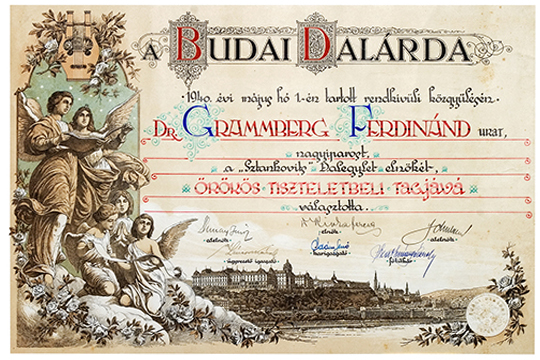 A BUDAI DALÁRDA
1940. évi május hó 1.-én tartott rendkívüli közgyűlésén
DR. GRAMMBERG FERDINÁND urat,
nagyiparost,
a „Sztankovits" Dalegylet elnökét,
ÖRÖKÖS TISZTELETBELI TAGJÁVÁ
választotta.
alelnök. elnök. alelnök.
ügyvezető igazgató karigazgató. főtitkár.